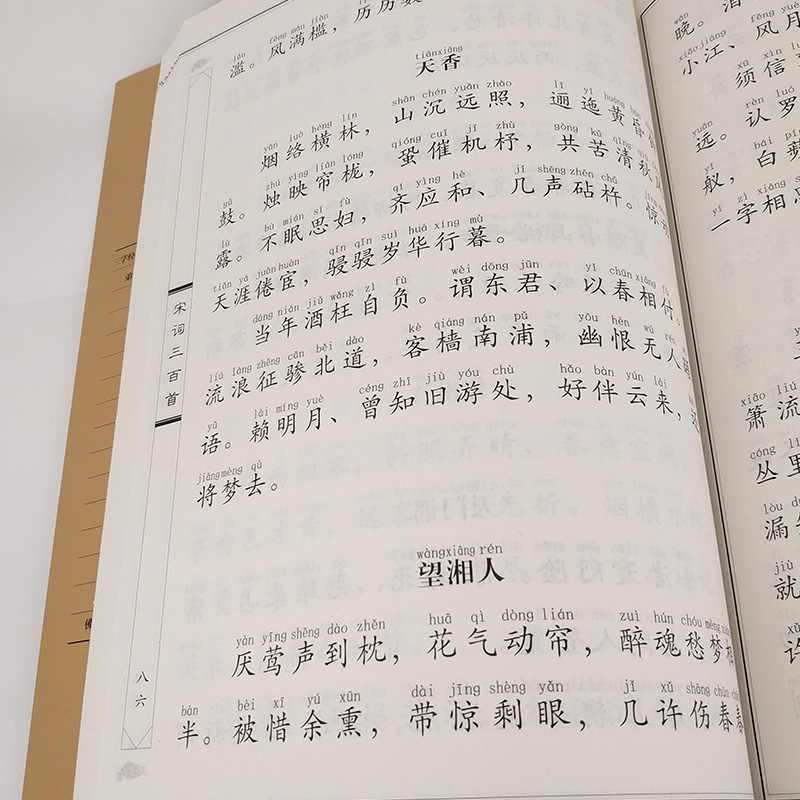 làn fēng mǎn jiàn
滥。风满槛，历历数
tiānxiāng
天香
yān luò héng lín shān chén yuǎn zhào lǐ yǐ huáng hūn
烟络横林，山沉远照，逦迤黄昏钟
gǔ zhú yìng lián lóng qióng cuī jī zhù gòng kǔ qīng qiū
鼓。烛映帘栊，蛩催机杼，共苦清秋风
lù bù mián sī fù qí yìng hè jǐ shēng zhēn chǔ
露。不眠思妇，齐应和、几声砧杵。惊动
tiān yá juàn huàn qīn qīn suì huá xíng mù
天涯倦宦，骎骎岁华行暮。
dāng nián jiǔ wǎng zì fù wèi dōng jūn yǐ chūn xiāng fù
当年酒枉自负。谓东君、以春相付。
liú làng zhēng cān běi dào kè qiáng nán pǔ yōu hèn wú rén
流浪征骖北道，客樯南浦，幽恨无人
yǔ lài míng yuè céng zhī jiù yóu chù hǎo bàn yún lái
语。赖明月、曾知旧游处，好伴云来，
jiāng mèng qù
将梦去。
wàngxiāng rén
望湘人
yàn yīng shēng dào zhěn huā qì dòng lián zuì hún chóu mèng
厌莺声到枕，花气动帘，醉魂愁梦
bàn bèi xī yú xūn dài jīng shèng yǎn jǐ xǔ shāng chūn
半。被惜余熏，带惊剩眼，几许伤春
宋词三百首
八六
wǎn
晚。
xiǎo jiāng fēng yuè
小江、风月
xū xìn
须信
yuǎn rèn luó
远。认罗
yǐ bái pín
蚁，白蘋
yī zì xiāng sī
一字相思
xiāo liú
箫流
cóng lǐ
丛里
lòu
漏
jiù
就
xǔ
许